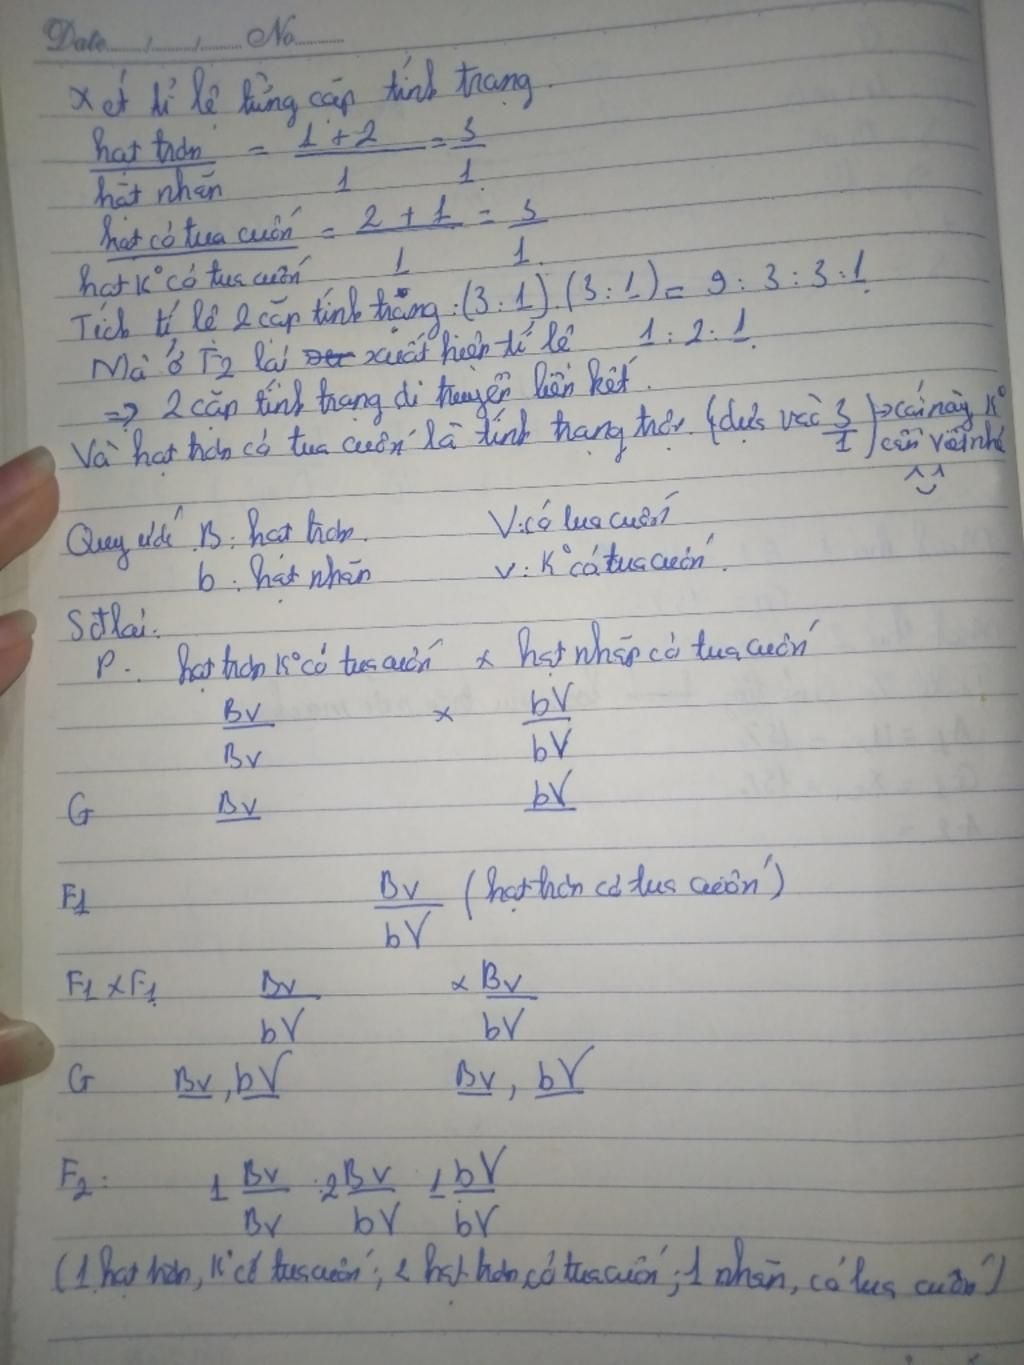 Date....../....../...... No..........
Xét tỉ lệ từng cặp tính trạng.
hạt trơn = 1 + 2 = 3
hạt nhăn 1 1
hạt có tua cuốn = 2 + 1 = 3
hạt K° có tua cuốn 1 1.
Tích tỉ lệ 2 cặp tính trạng: (3:1).(3:1) = 9:3:3:1
Mà ở F2 lại xuất hiện tỉ lệ 1:2:1.
=> 2 cặp tính trạng di truyền liên kết.
Và hạt trơn có tua cuốn là tính trạng trội. (dựa vào 3/1) -> cái này K° cần viết nhé ^^
Quy ước B: hạt trơn. V: có tua cuốn
b: hạt nhăn v: K° có tua cuốn.
Sơ đồ lai:
P: hạt trơn K° có tua cuốn x hạt nhăn có tua cuốn
Bv x bV
Bv bV
G Bv bV
F1 Bv (hạt trơn có tua cuốn)
bV
F1 x F1 Bv x Bv
bV bV
G Bv, bV Bv, bV
F2: 1 Bv : 2 Bv 1 bV
Bv bV bV
(1 hạt trơn, K° có tua cuốn; 2 hạt trơn có tua cuốn; 1 nhăn, có tua cuốn)